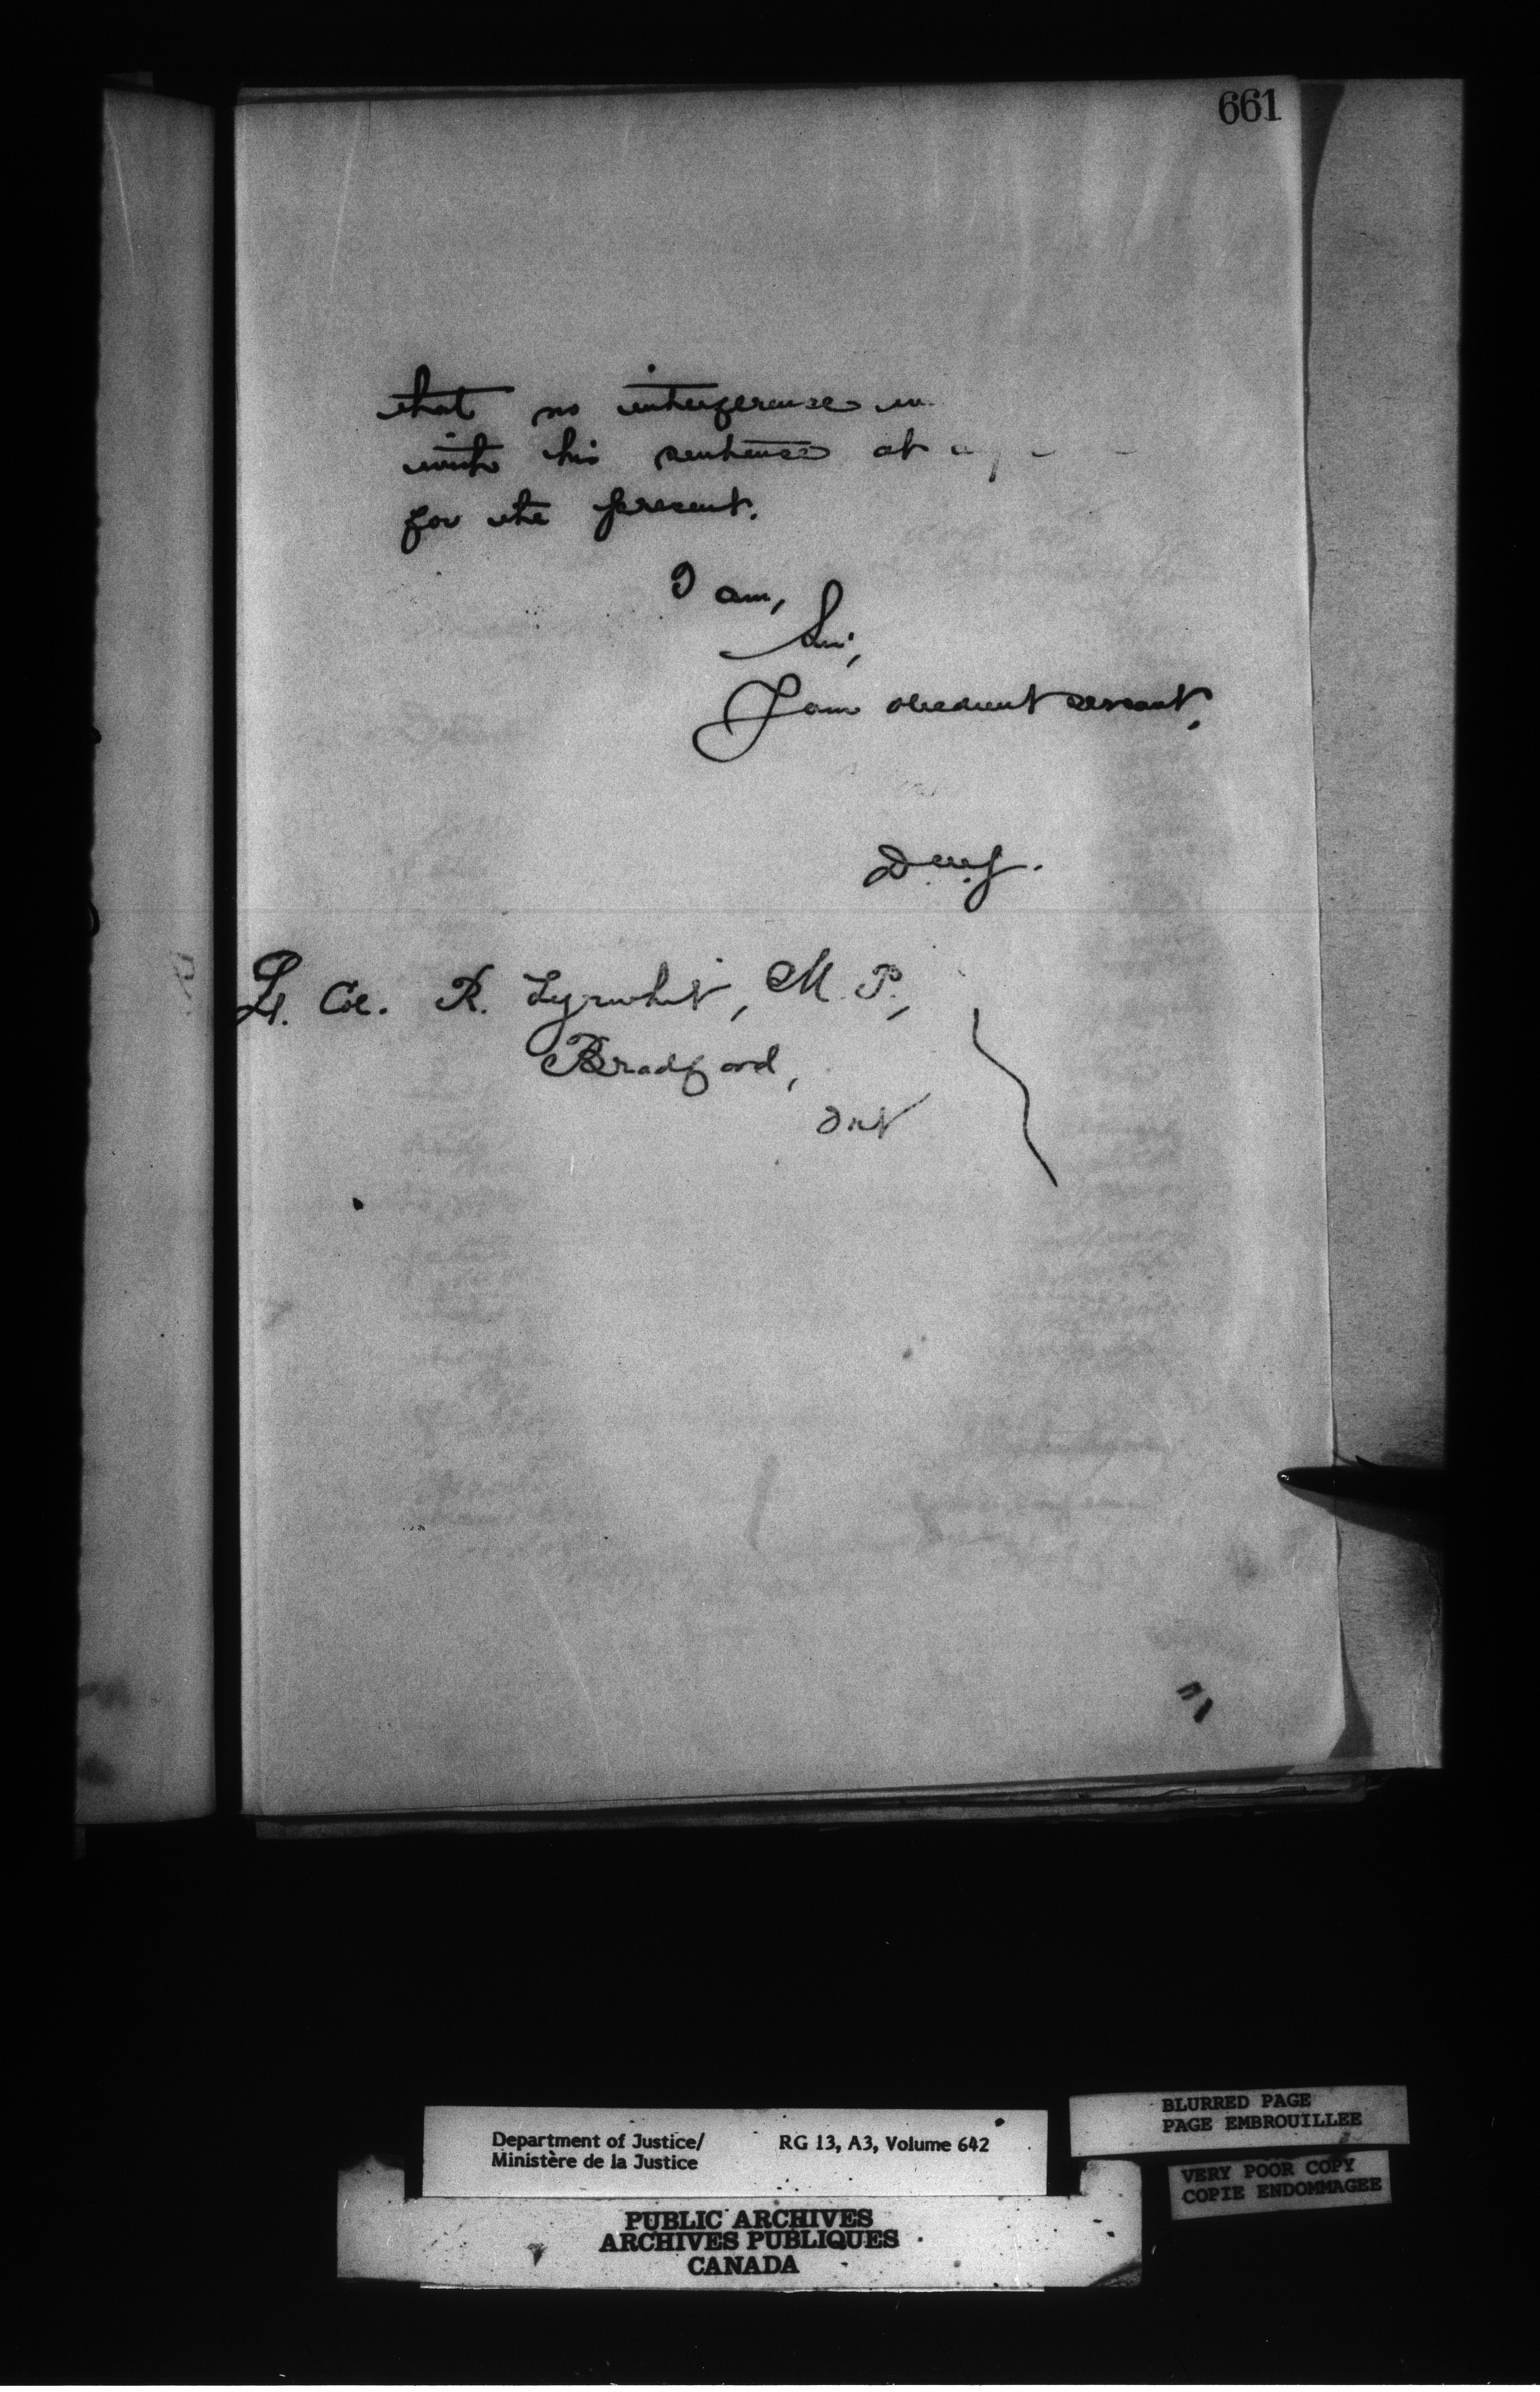 661
that no interference
with his sentence at
for the present.
I am,
Sir,
Your obedient servant,
Lt. Col. R. Tyrwhit, M.P.,
Bradford,
Ont
Department of Justice/ RG 13, A3, Volume 642
Ministère de la Justice
PUBLIC ARCHIVES
ARCHIVES PUBLIQUES
CANADA
BLURRED PAGE
PAGE EMBROUILLEE
VERY POOR COPY
COPIE ENDOMMAGEE